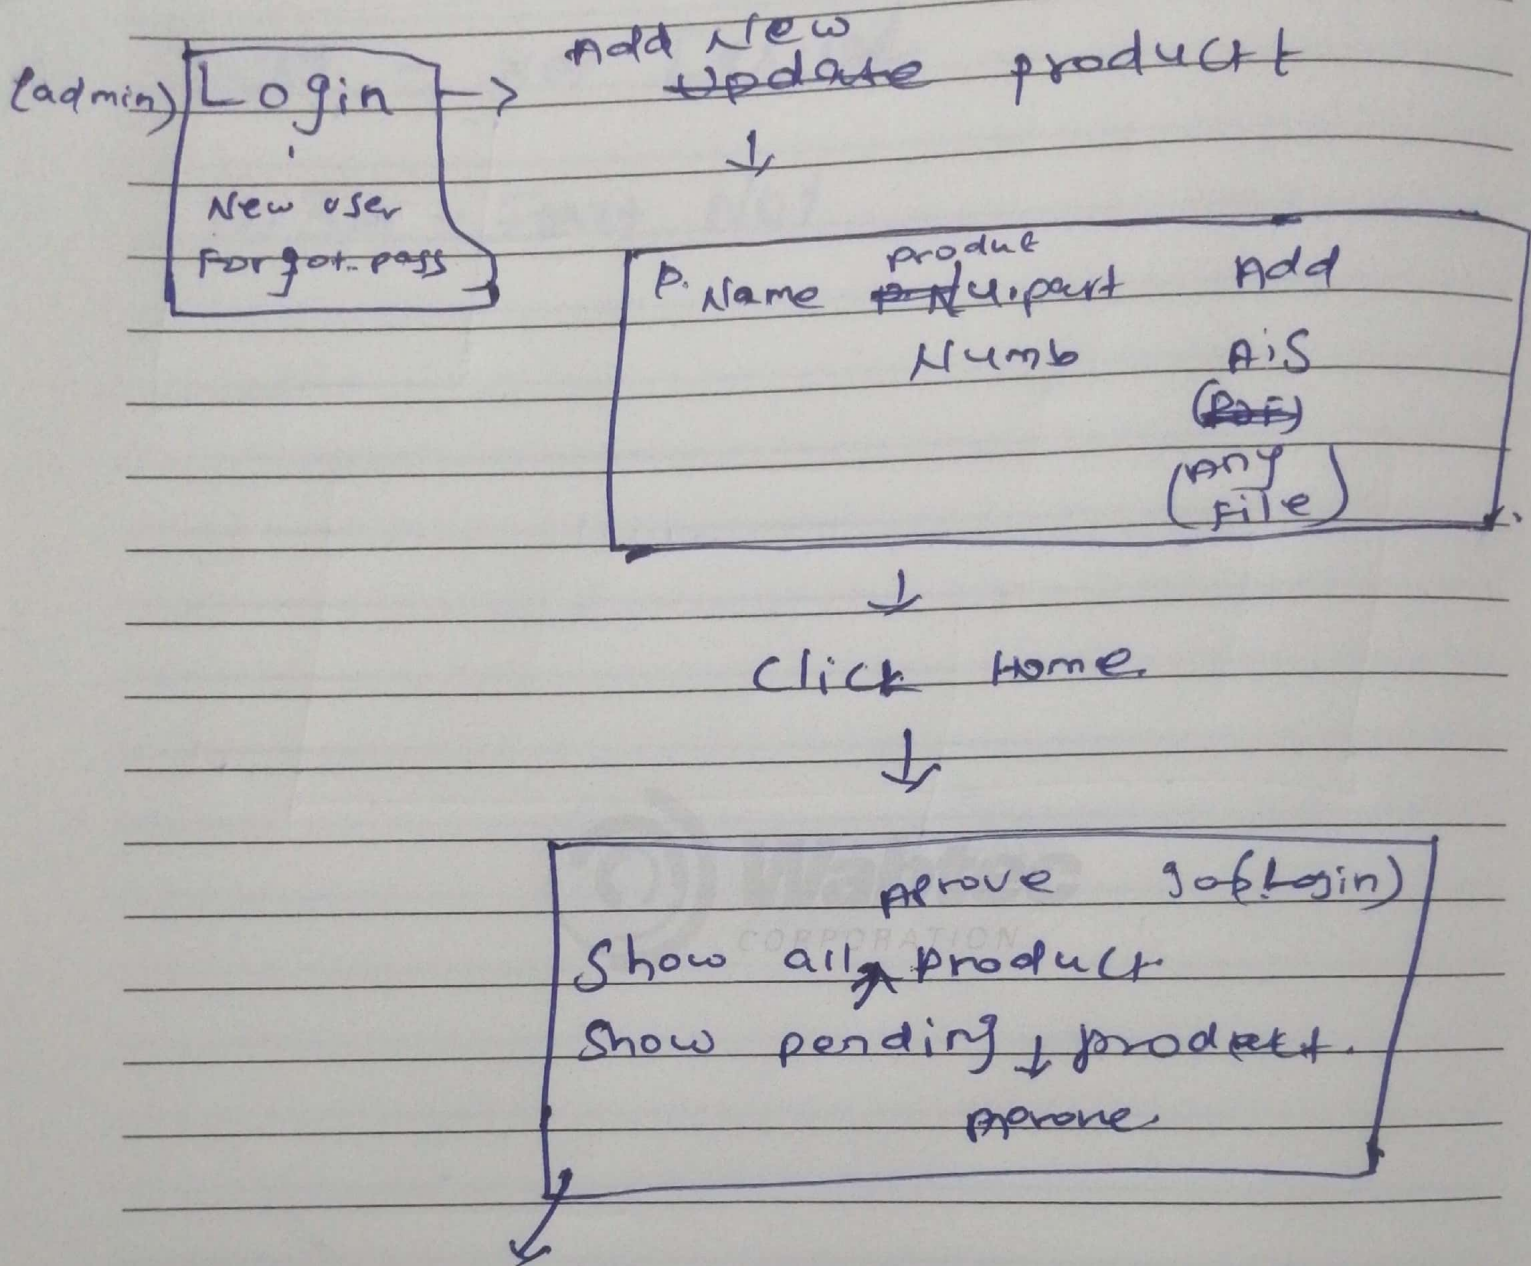 Add New
(admin) Login → Update product
↓
New user
Forgot pass
product
P. Name Nu.part Add
Numb AiS
(PDF)
(Any
File)
↓
Click Home
↓
Aprove (Login)
Show all product
Show pending ↓ product.
Aprove
CORPORATION